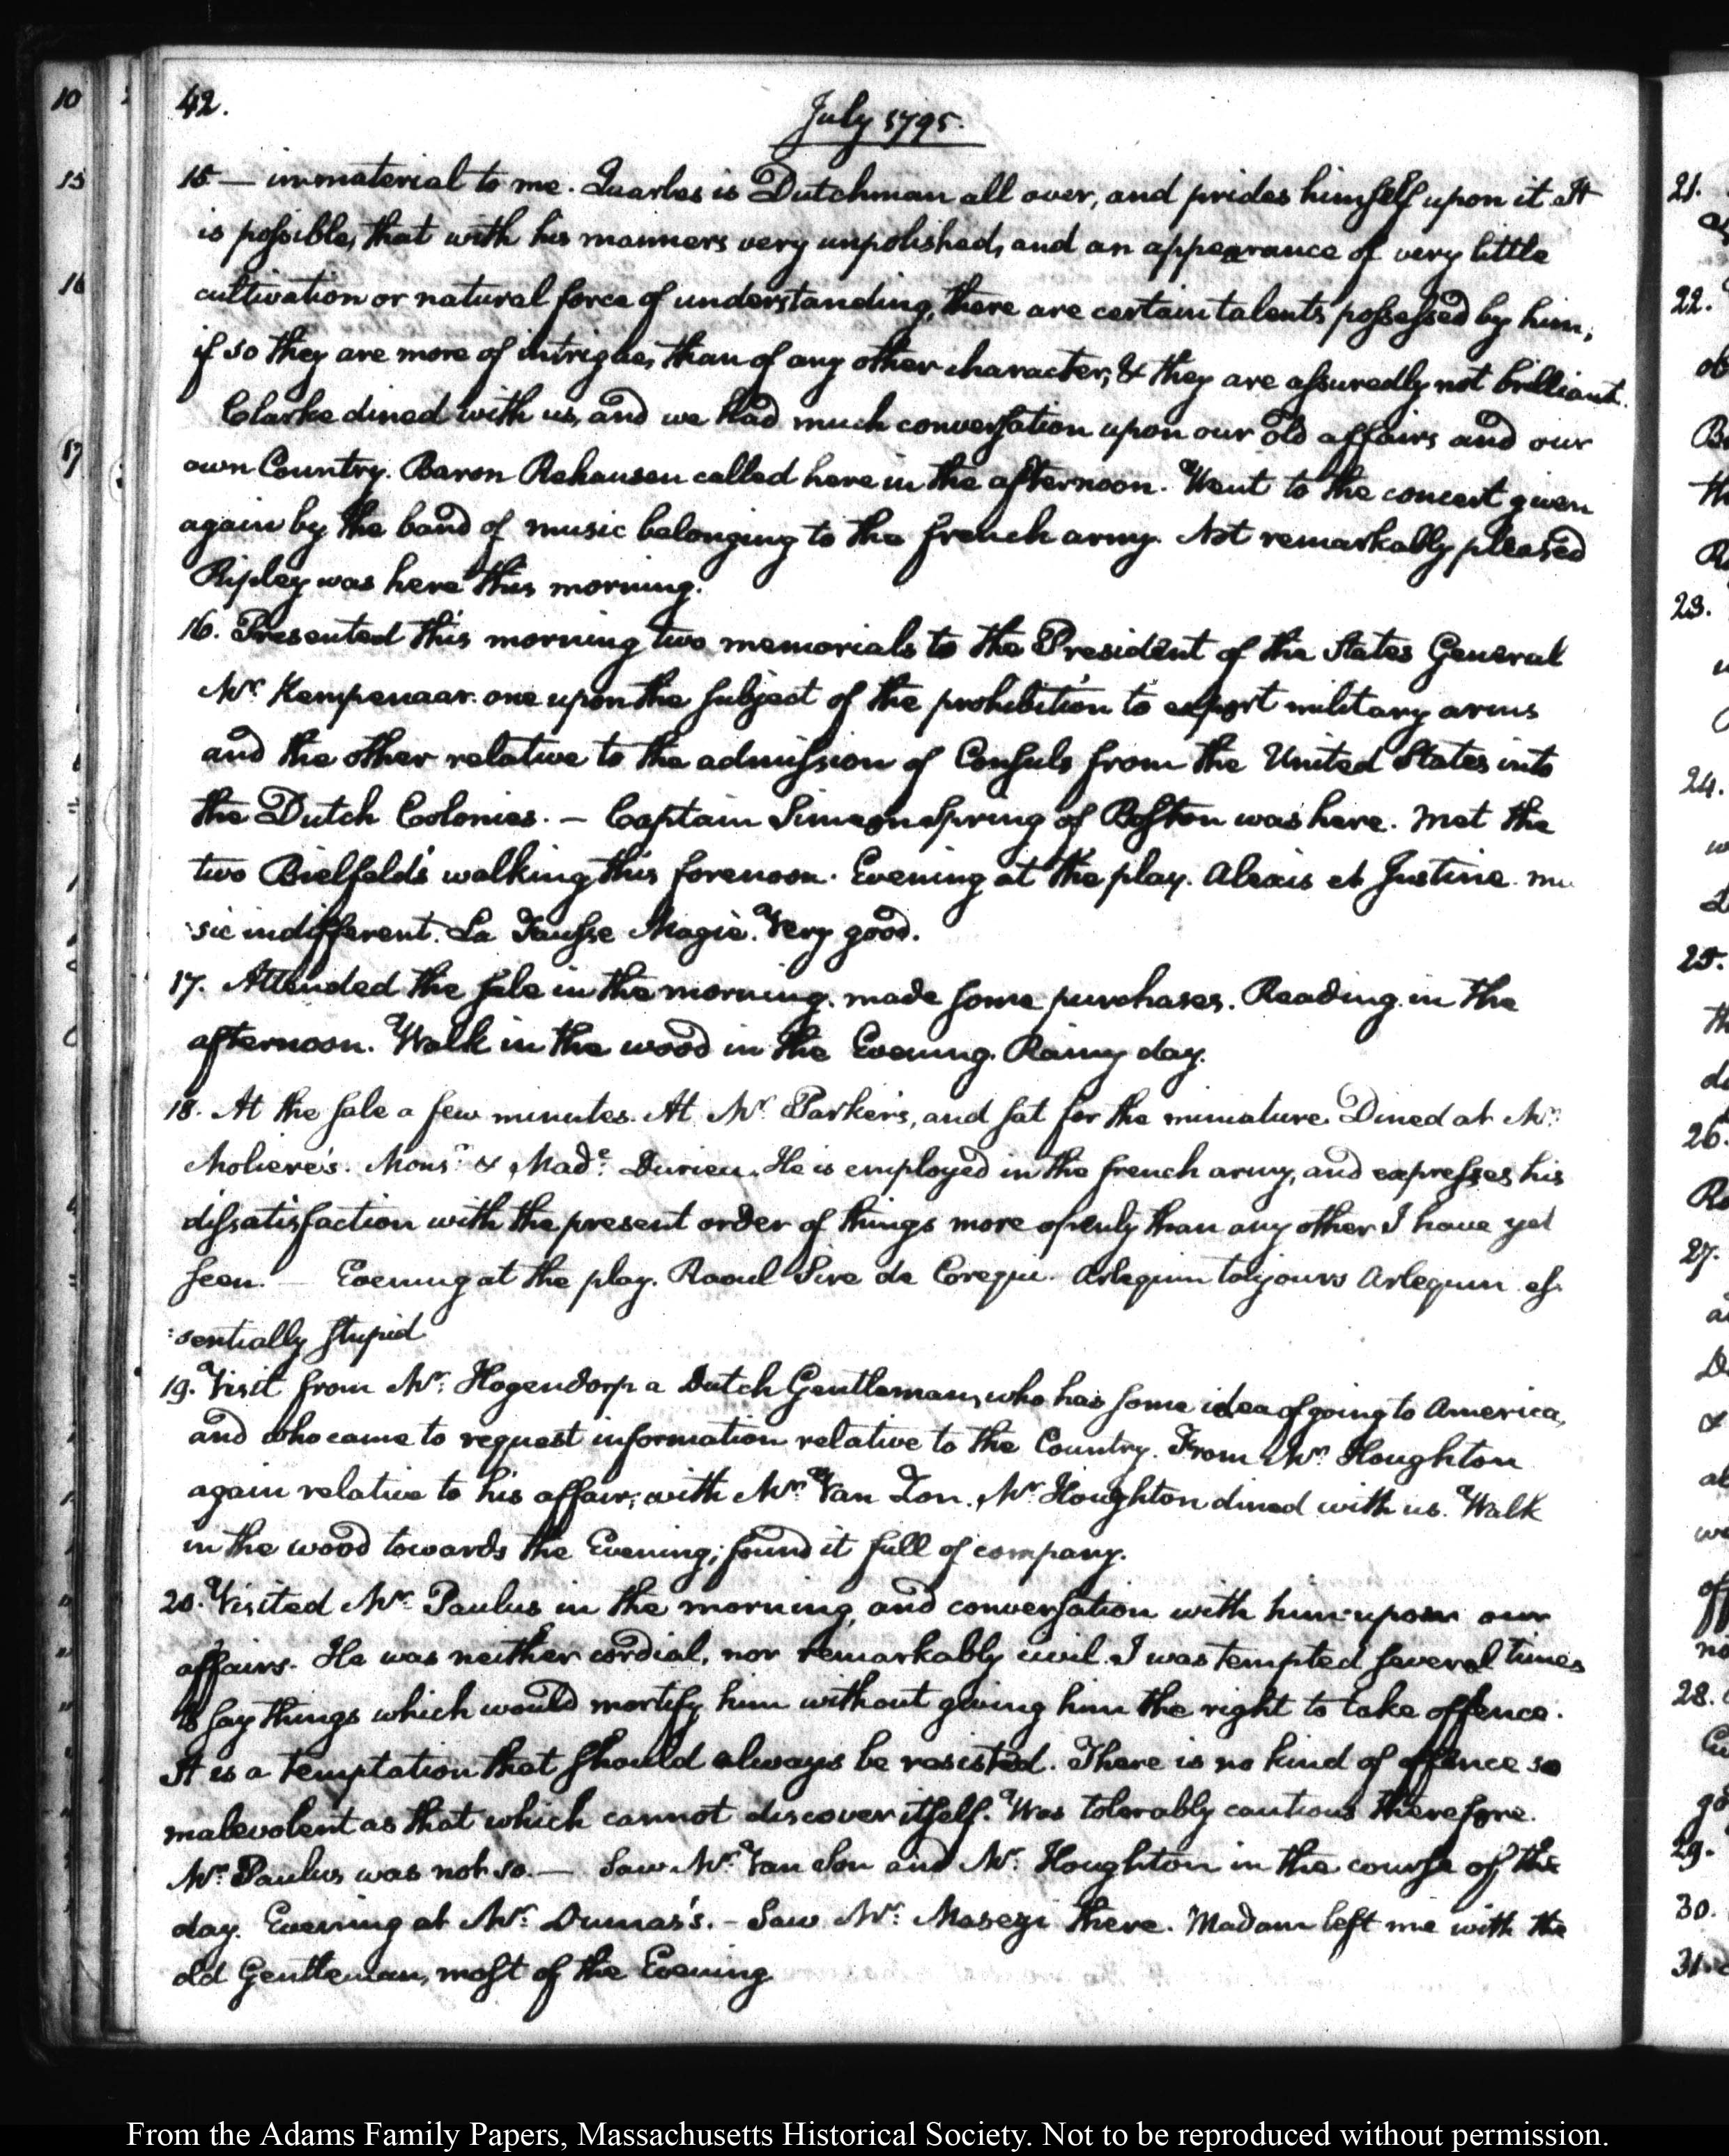 42.
July 1795.
15 — immaterial to me. Quarles is Dutchman all over, and prides himself upon it. It
is possible, that with his manners very unpolished, and an appearance of very little
cultivation or natural force of understanding, there are certain talents possessed by him,
if so they are more of intrigue, than of any other character, & they are assuredly not brilliant.
Clarke dined with us, and we had much conversation upon our old affairs and our
own Country. Baron Rehausen called here in the afternoon. Went to the concert given
again by the band of music belonging to the french army. Not remarkably pleased
Ripley was here this morning.
16. Presented this morning two memorials to the President of the States General
Mr. Kempenaar. one upon the subject of the prohibition to export military arms
and the other relative to the admission of Consuls from the United States into
the Dutch Colonies. — Captain Simeon Spring of Boston was here. Met the
two Bielfeld's walking this forenoon. Evening at the play. Alexis et Justine. mu
:sic indifferent. La Fausse Magie. Very good.
17. Attended the sale in the morning. made some purchases. Reading in the
afternoon. Walk in the wood in the Evening. Rainy day.
18. At the sale a few minutes. At Mr. Parker's, and sat for the miniature. Dined at Mr.
Moliere's. Monsr. & Made. Durieu. He is employed in the french army, and expresses his
dissatisfaction with the present order of things more openly than any other I have yet
seen. — Evening at the play. Raoul Sire de Crequi. Arlequin toujours Arlequin. es
:sentially stupid
19. Visit from Mr. Hogendorp a Dutch Gentleman, who has some idea of going to America,
and who came to request information relative to the Country. From Mr. Houghton
again relative to his affair, with Mr. Van Son. Mr. Houghton dined with us. Walk
in the wood towards the Evening; found it full of company.
20. Visited Mr. Paulus in the morning, and conversation with him upon our
affairs. He was neither cordial, nor remarkably civil. I was tempted several times
to say things which would mortify him without giving him the right to take offence.
It is a temptation that should always be resisted. There is no kind of offence so
malevolent as that which cannot discover itself. Was tolerably cautious therefore.
Mr. Paulus was not so. — Saw Mr. Van Son and Mr. Houghton in the course of the
day. Evening at Mr. Dumas's. — Saw Mr. there. Madam left me with the
old Gentleman, most of the Evening
10
15
16
17
21.
22.
23.
24.
25.
26.
27.
28.
29.
30.
31.
From the Adams Family Papers, Massachusetts Historical Society. Not to be reproduced without permission.